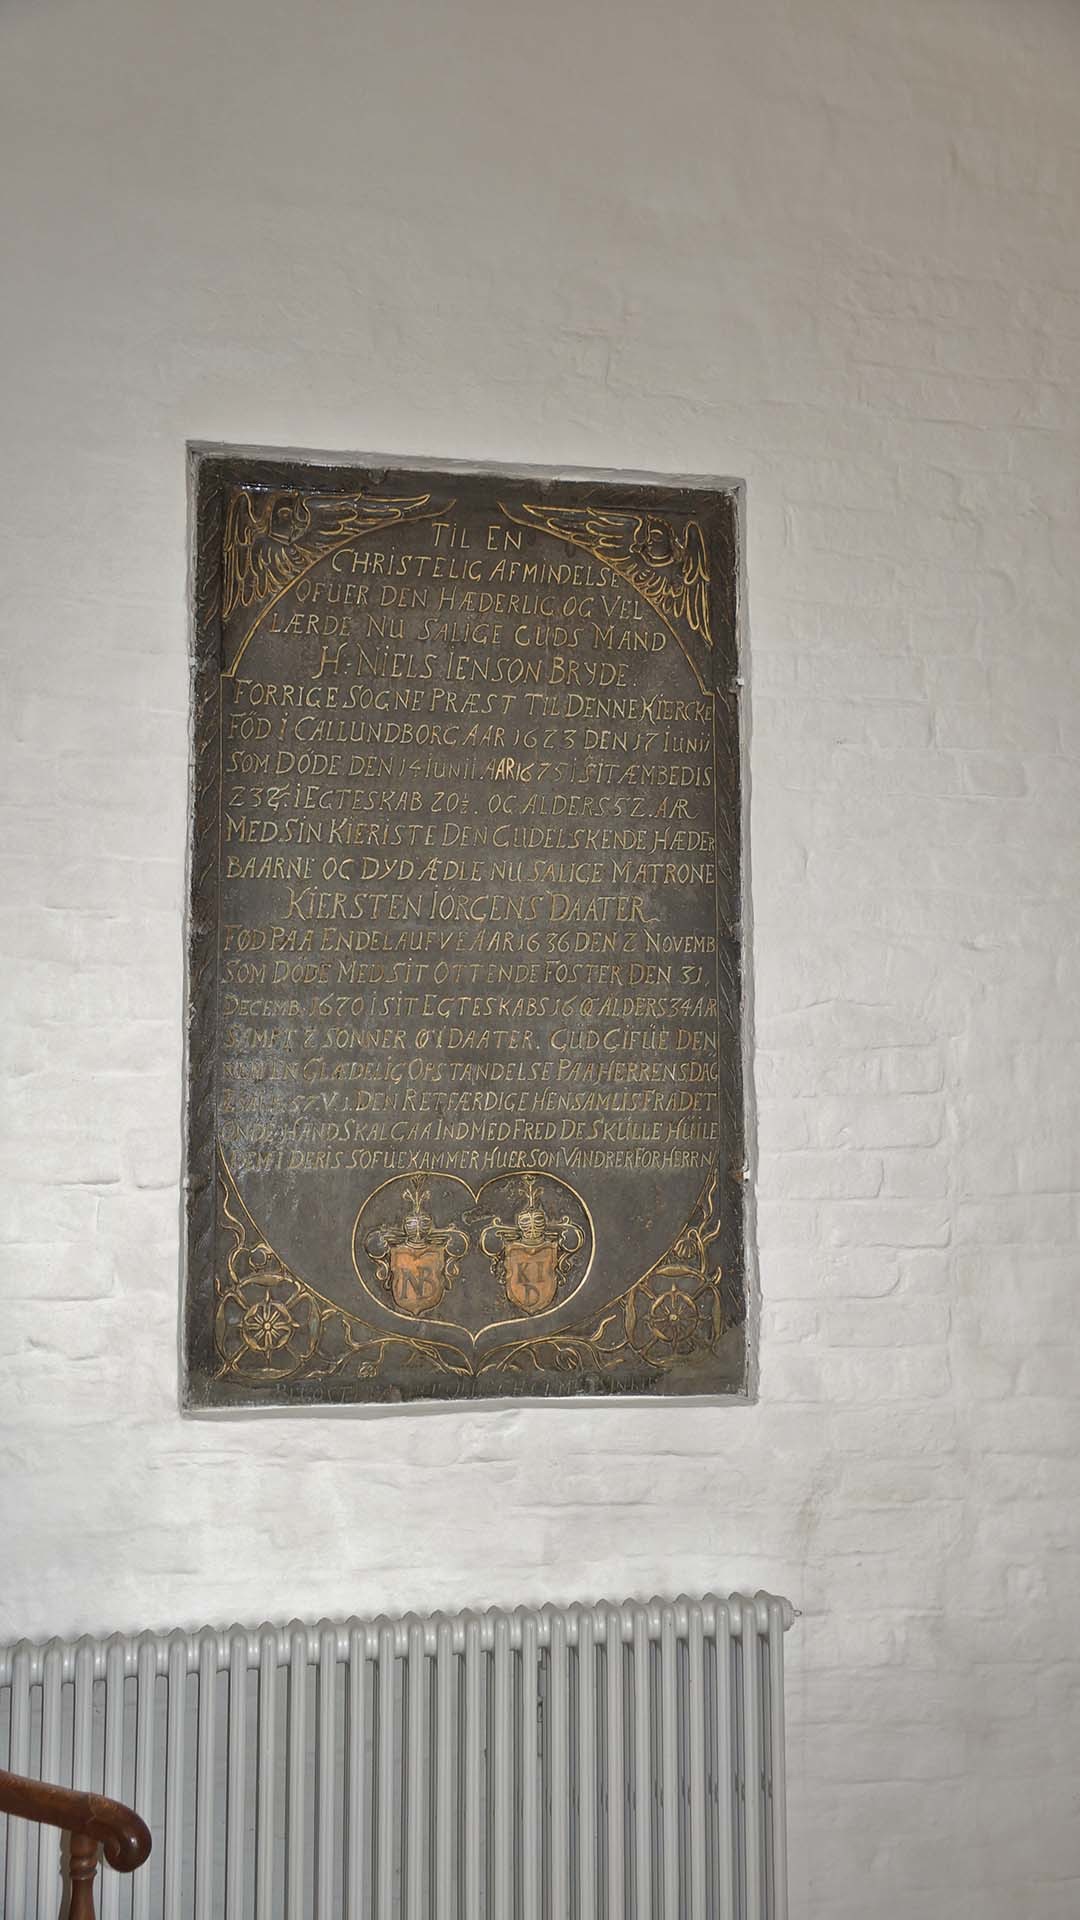 TIL EN
CHRISTELIG AFMINDELSE
OFUER DEN HÆDERLIG OG VEL
LÆRDE NU SALIGE GUDS MAND
H. NIELS IENSON BRYDE.
FORRIGE SOGNE PRÆST TIL DENNE KIERCKE
FØD I CALLUNDBORG AAR 1623 DEN 17 IUNII
SOM DÖDE DEN 14 IUNII AAR 1675 I SIT ÆMBEDIS
I EGTESKAB 20½. OG ALDERS 52. AAR
MED SIN KIERISTE DEN GUDELSKENDE HÆDER
BAARNE OG DYD ÆDLE NU SALIGE MATRONE
KIERSTEN IÖRGENS DAATER
FØD PAA ENDELAUFVE AAR 1636 DEN 2 NOVEMB
SOM DÖDE MED SIT OTTENDE FOSTER DEN 31.
DECEMB. 1670 I SIT EGTESKABS 16 ALDERS 34 AAR
2 SÖNNER DAATER. GUD GIFUE DEN
EN GLÆDELIG OPSTANDELSE PAA HERRENS DAG
57. V. 1. DEN RETFÆRDIGE HENSAMLIS FRA DET
ONDE HAND SKAL GAA IND MED FRED DE SKULLE HUILE
DEM I DERIS SOFUEKAMMER HUER SOM VANDRER FOR HERRN
NB
KI
D